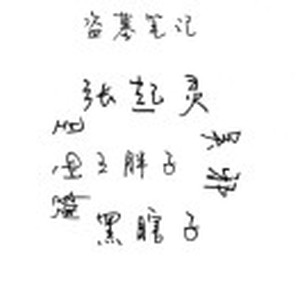 盗墓笔记
张起灵
解雨臣
王胖子
吴邪
黑瞎子